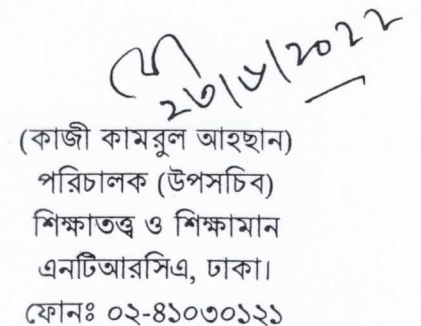 (কাজী কামরুল আহছান)
পরিচালক (উপসচিব)
শিক্ষাতত্ত্ব ও শিক্ষামান
এনটিআরসিএ, ঢাকা।
ফোনঃ ০২-৪১০৩০১২১